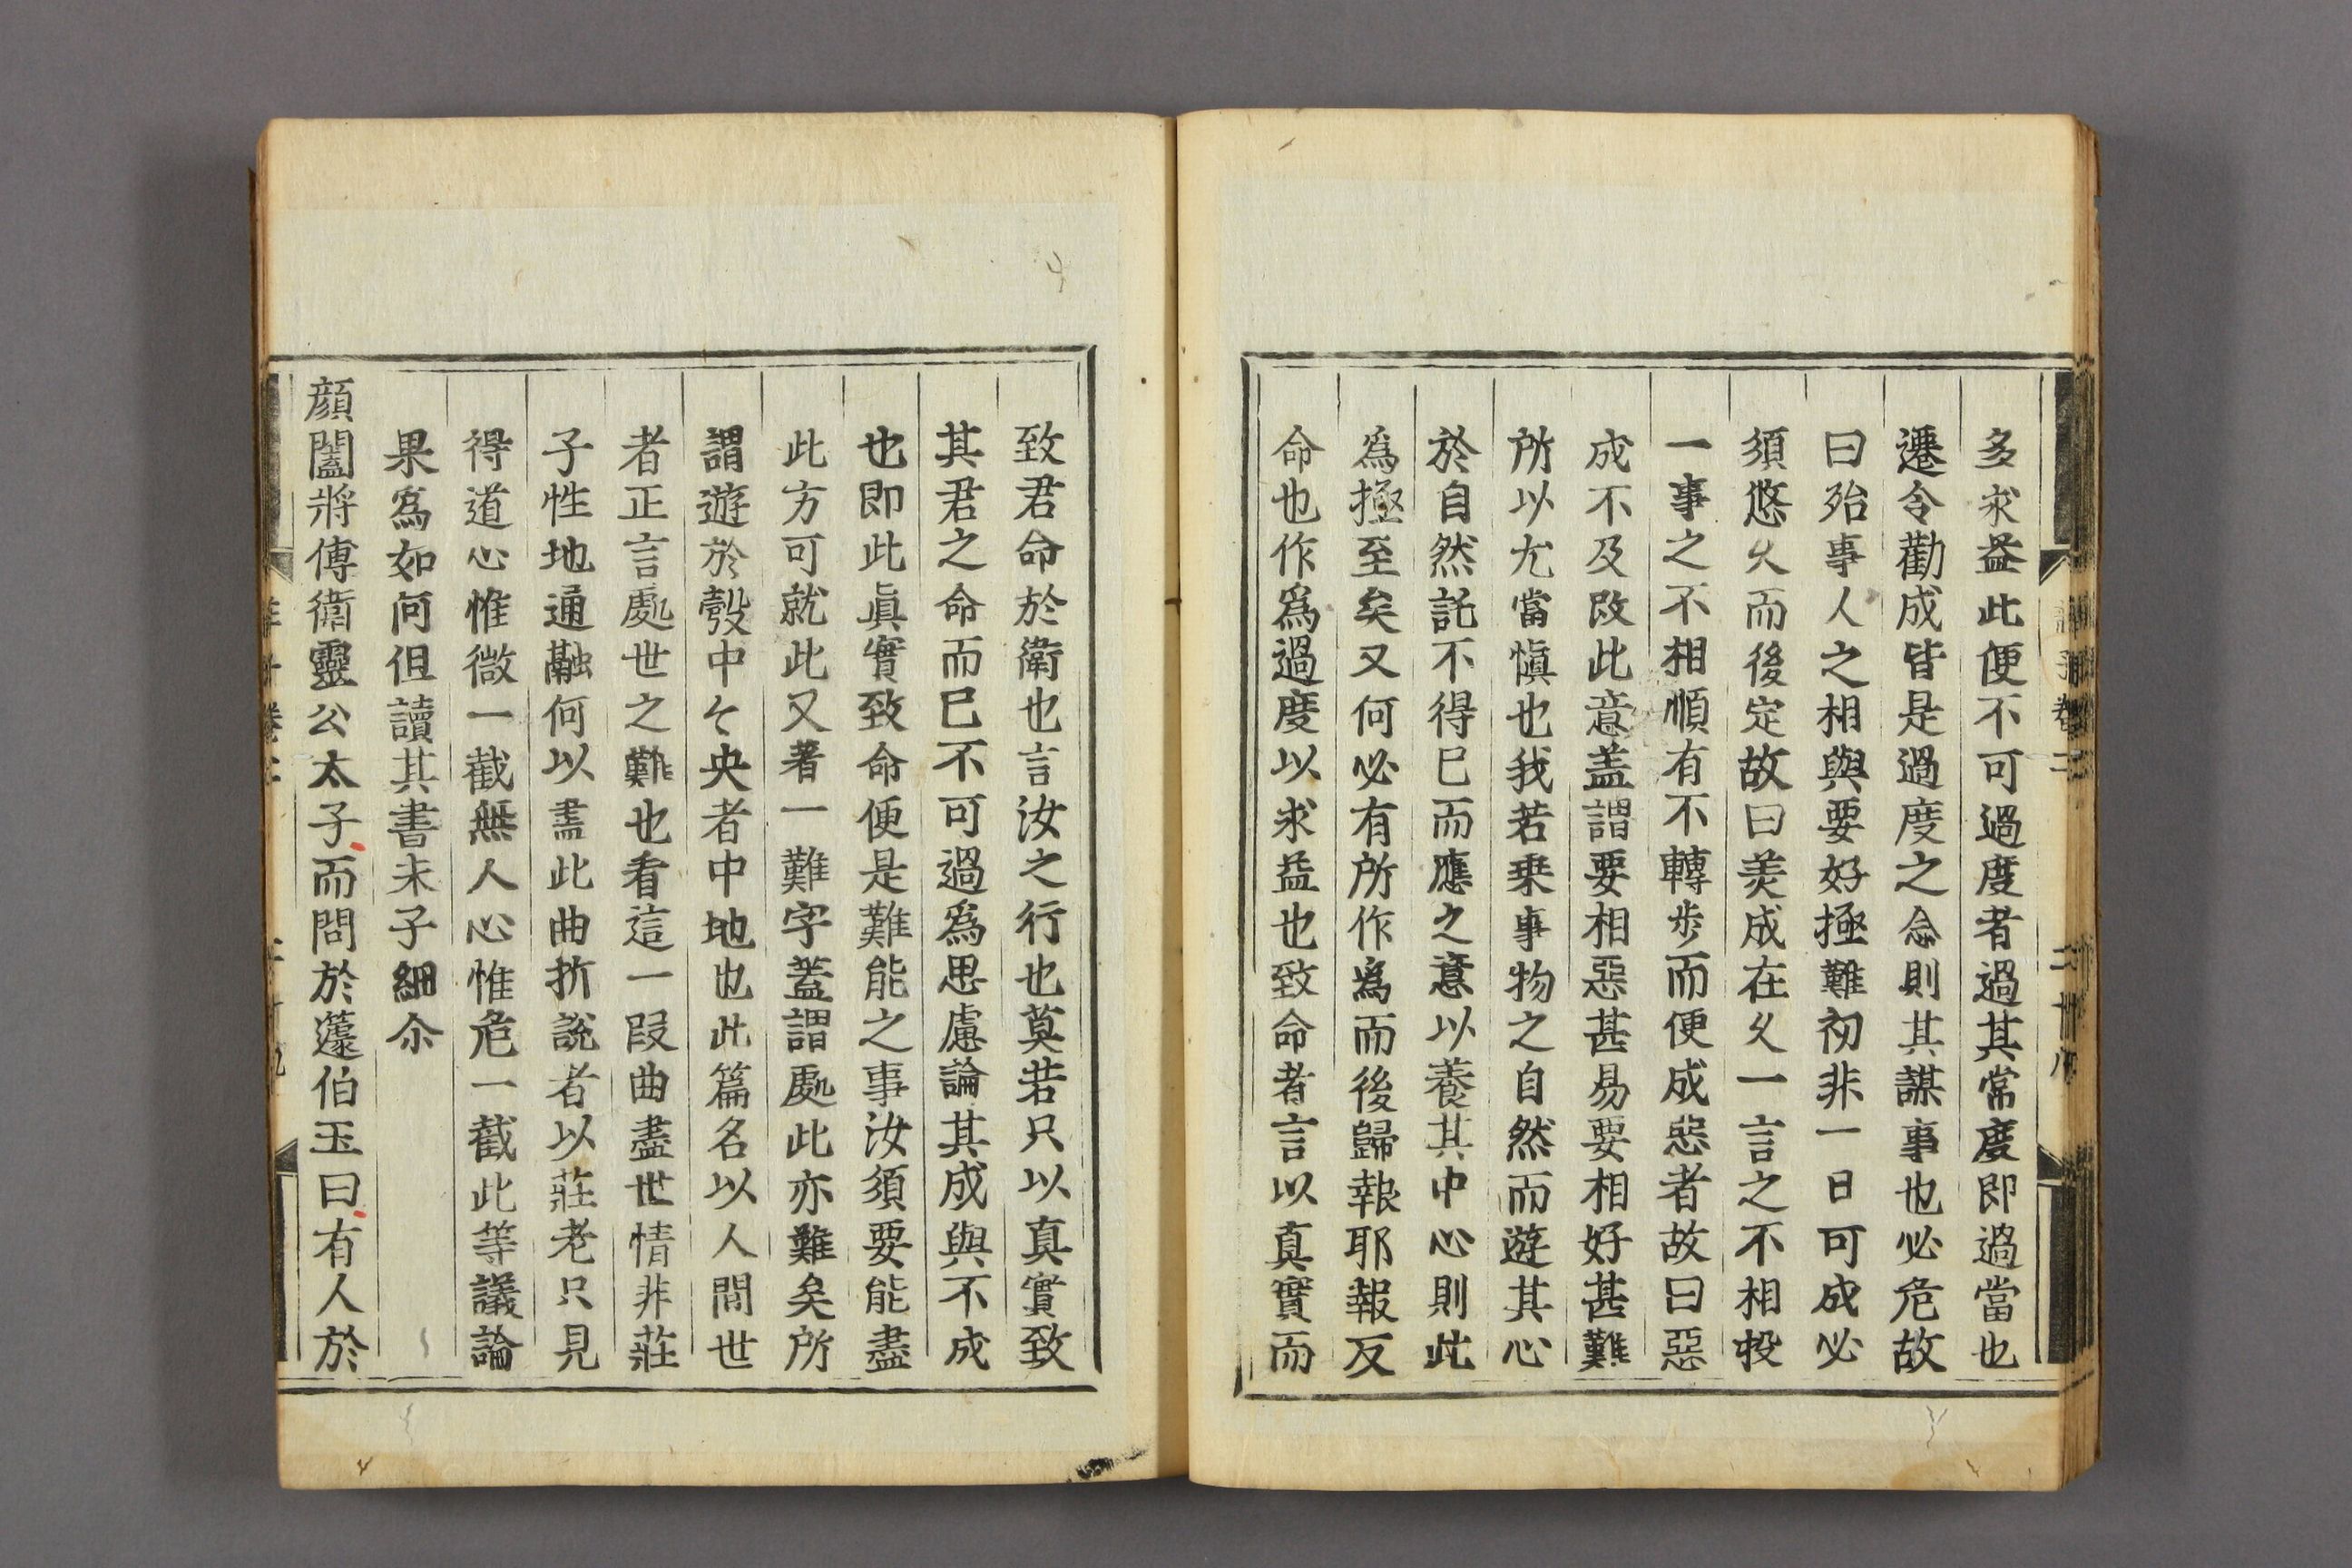 多求益此便不可過度者過其常度即過當也
遷令勸成皆是過度之念則其謀事也必危故
曰殆事人之相與要好極難初非一日可成必
須悠久而後定故曰美成在久一言之不相投
一事之不相順有不轉步而便成惡者故曰惡
成不及改此意盖謂要相惡甚易要相好甚難
所以尤當愼也我若乗事物之自然而遊其心
於自然託不得已而應之意以養其中心則此
爲極至矣又何必有所作爲而後歸報耶報反
命也作爲過度以求益也致命者言以真實而
致君命於衛也言汝之行也莫若只以真實致
其君之命而已不可過爲思慮論其成與不成
也即此眞實致命便是難能之事汝須要能盡
此方可就此又著一難字蓋謂處此亦難矣所
謂遊於彀中々央者中地也此篇名以人間世
者正言處世之難也看這一段曲盡世情非莊
子性地通融何以盡此曲折說者以莊老只見
得道心惟微一截無人心惟危一截此等議論
果爲如何但讀其書未子細尒
顔闔將傅衛靈公太子而問於蘧伯玉曰有人於